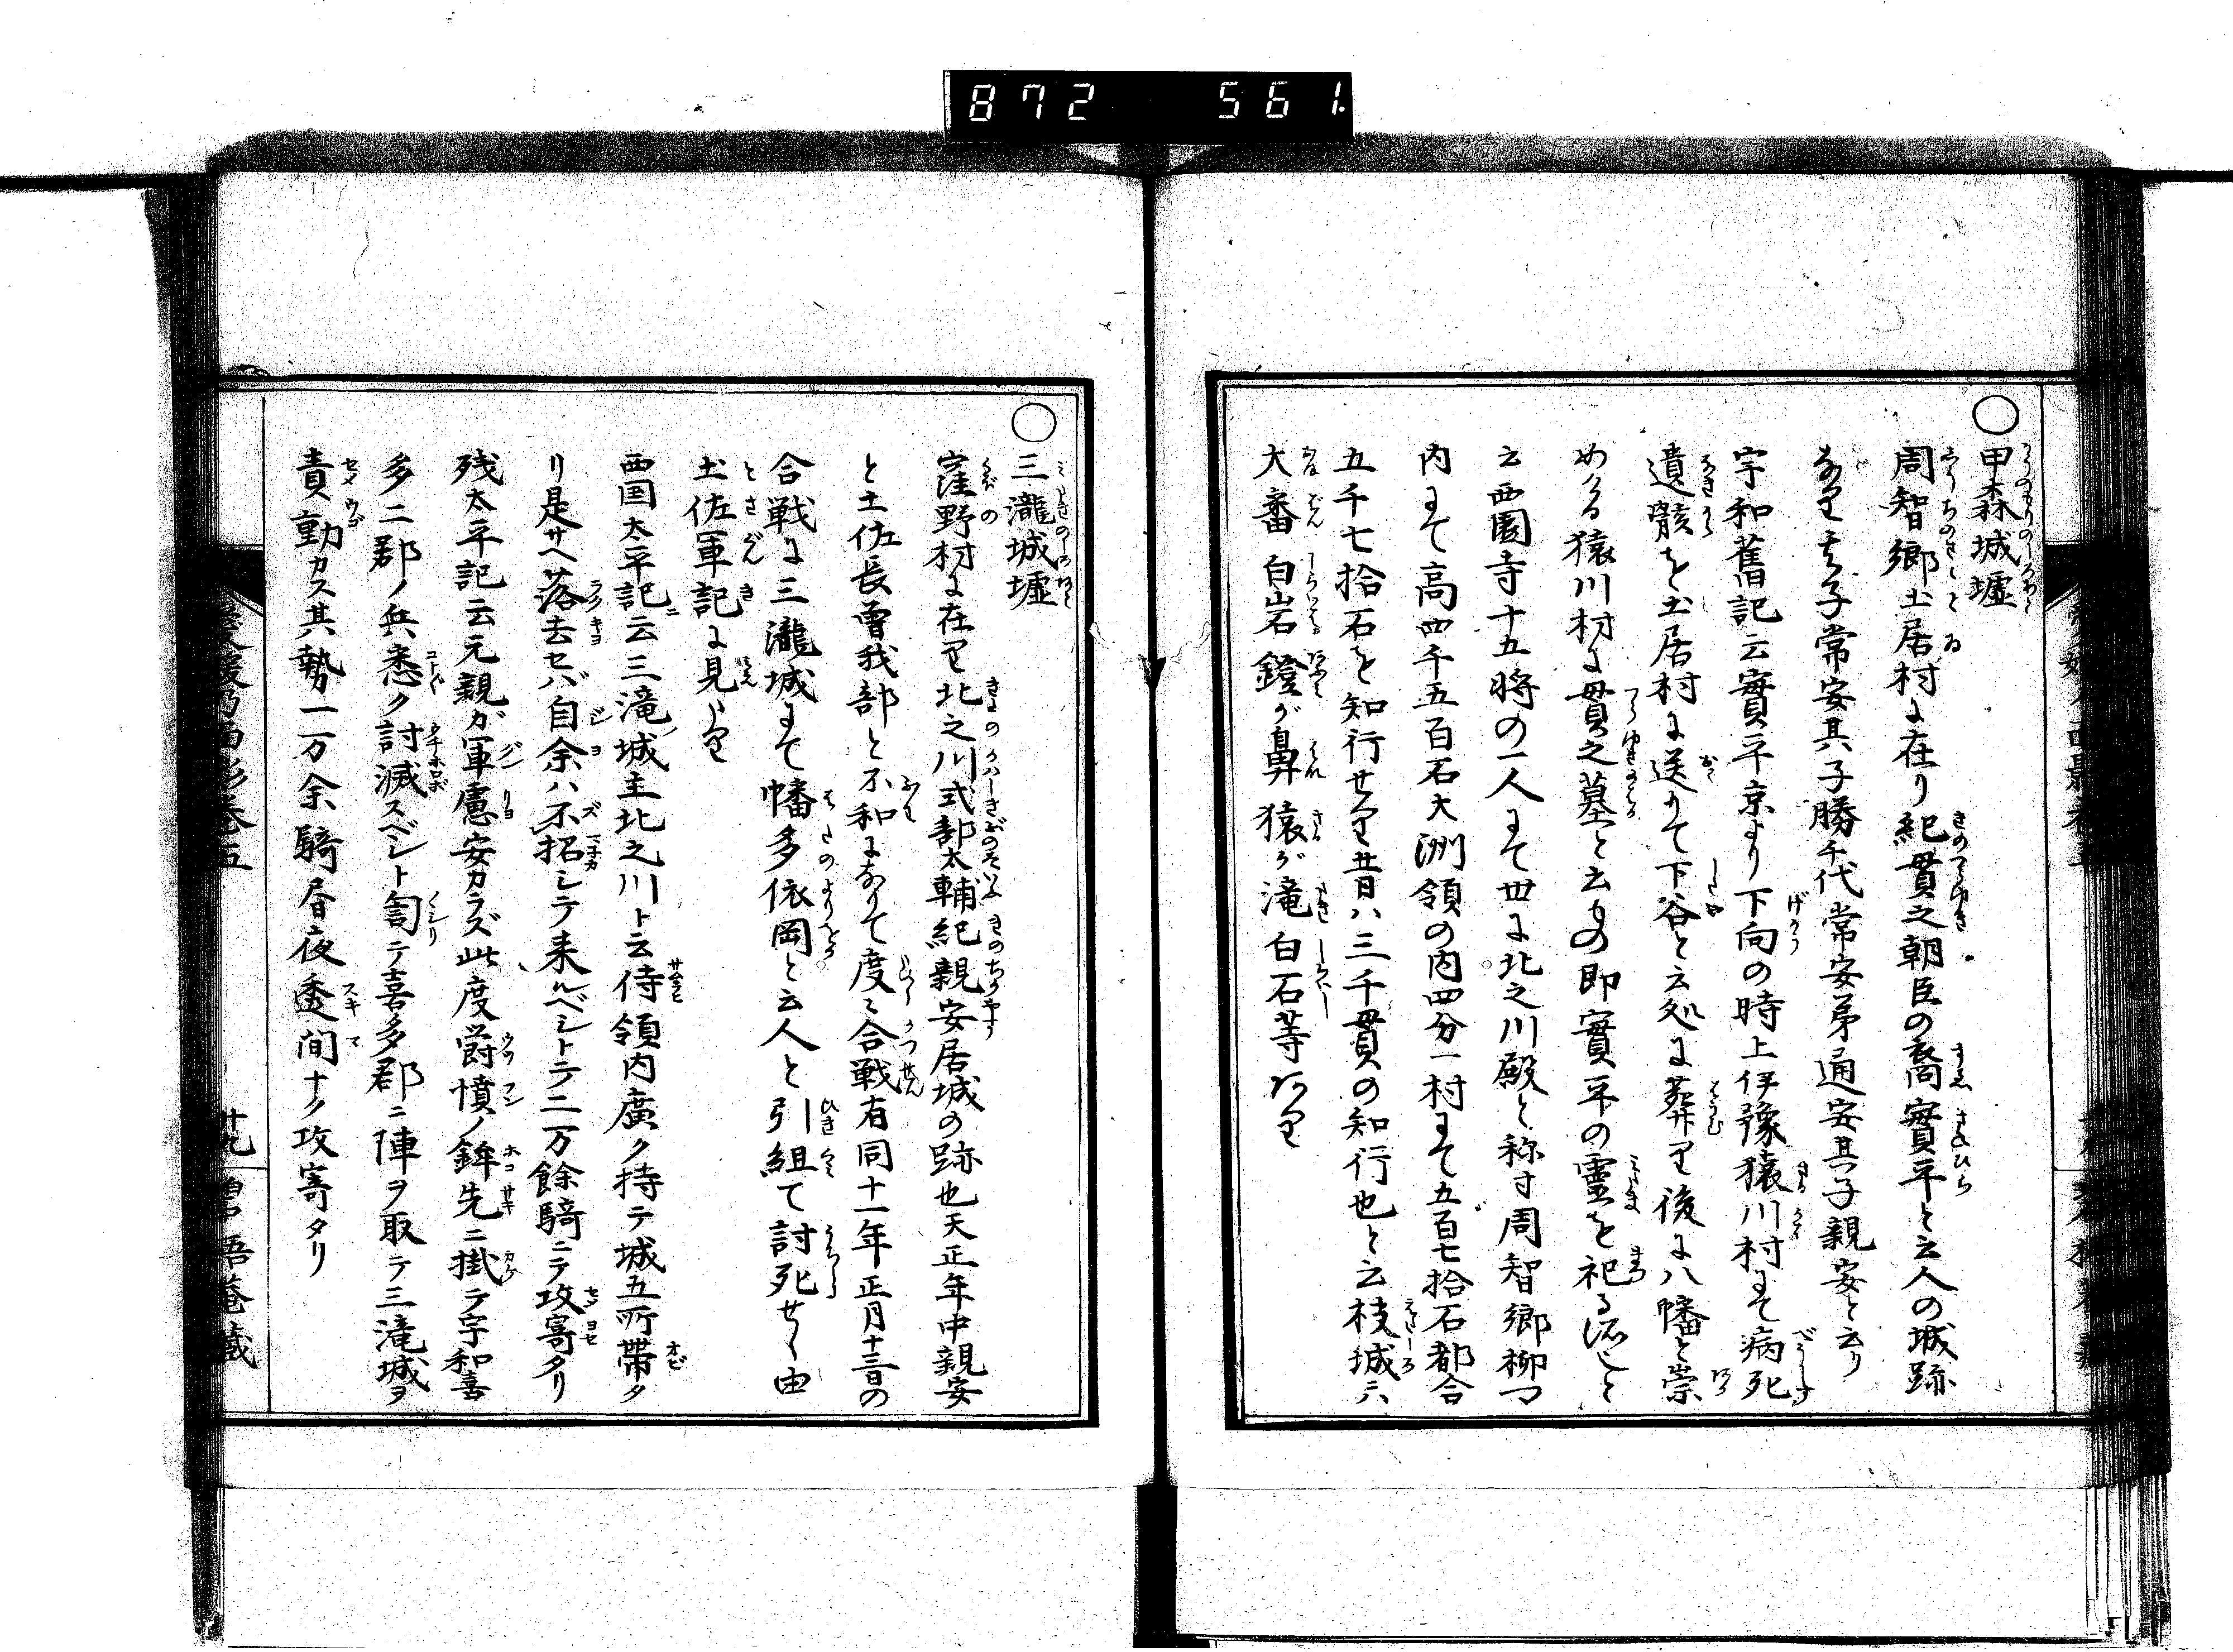 872 561
○ 甲森城墟
周智郷土居村に在り紀貫之朝臣の裔實平と云人の城跡
なり其子常安其子勝千代常安弟通安其子親安と云り
宇和舊記云實平京より下向の時上伊豫猿川村にて病死
遺骸を土居村に送りて下谷と云処に葬り後に八幡と崇
める猿川村に貫之墓と云もの即實平の霊を祀る泌しと
云西園寺十五将の一人にて世に北之川殿と称す周智郷柳マ
内にて高四千五百石大洲領の内四分一村にて五百七拾石都合
五千七拾石を知行せり昔日ハ三千貫の知行也と云枝城六
大番白岩鐙が鼻猿が滝白石等アリ
○ 三瀧城墟
窪野村に在り北之川式部太輔紀親安居城の跡也天正年中親安
と土佐長曽我部と不和になりて度々合戦有同十一年正月十三日の
合戦に三瀧城にて幡多依岡と云人と引組て討死せし由
土佐軍記に見えたり
西国太平記ニ云三滝ノ城主北之川ト云侍領内廣ク持テ城五所帯タ
リ是サヘ落去セバ自余ハ不招シテ来ルベシトテ二万餘騎ニテ攻寄タリ
残太平記云元親ガ軍慮安カラズ此度欝憤ノ鉾先ニ掛テ宇和喜
多二郡ノ兵悉ク討滅スベシト訇テ喜多郡ニ陣ヲ取テ三滝城ヲ
責動カス其勢一万余騎昼夜透間ナク攻寄タリ
愛媛乃面影巻五
十九